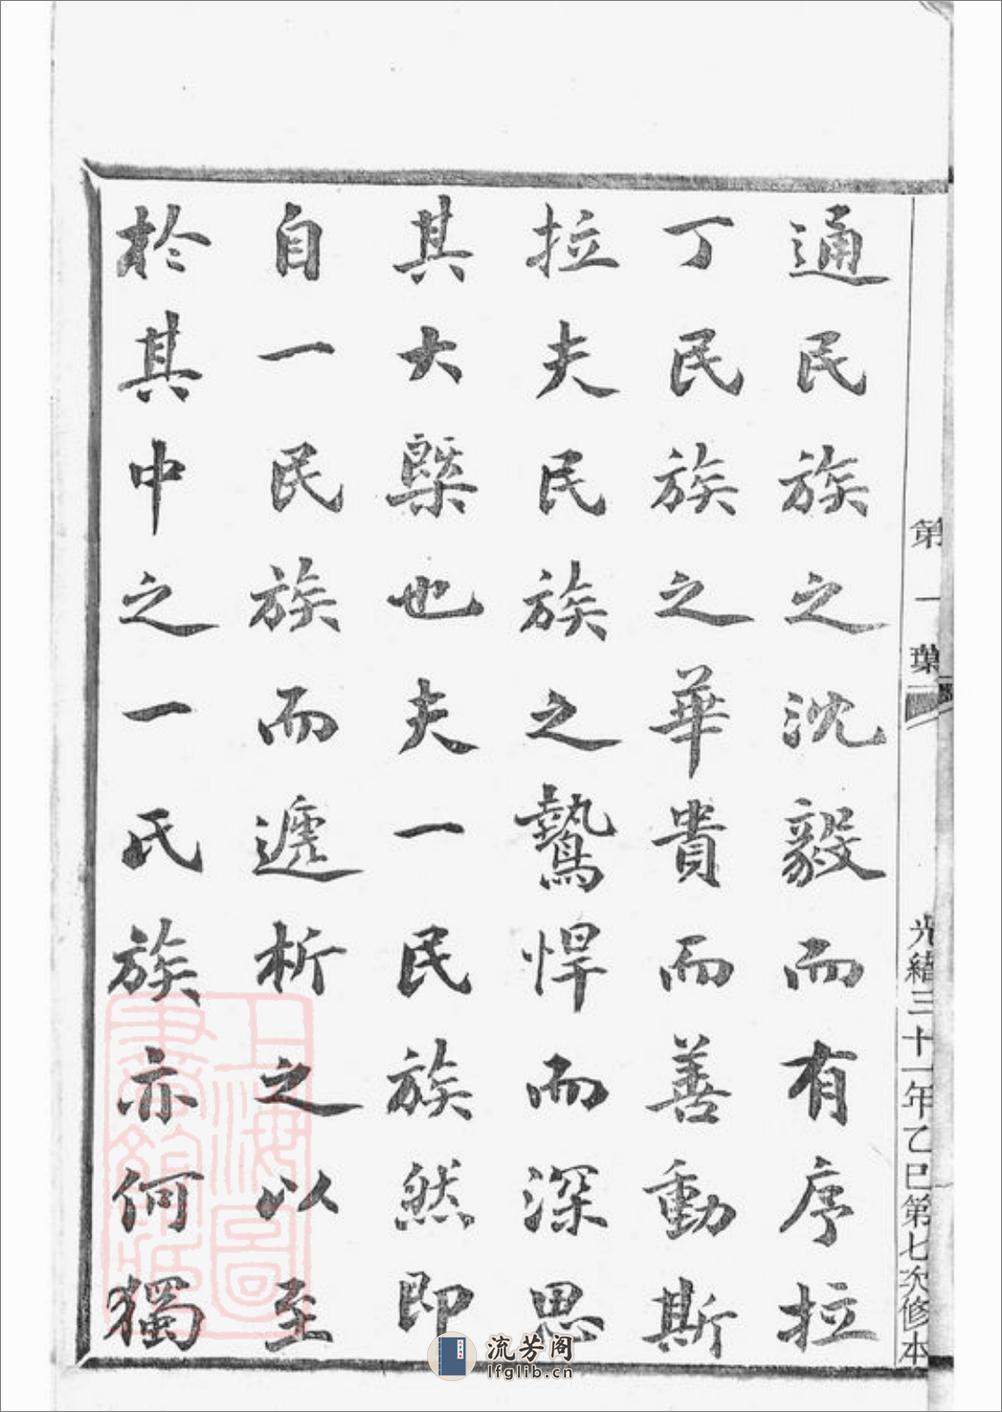 第一葉
光緒三十一年乙巳第七次修本
通民族之沈毅而有序拉
丁民族之華貴而善動斯
拉夫民族之鷙悍而深思
其大槩也夫一民族然即
自一民族而遞析之以至
於其中之一氏族亦何獨
上海圖書館藏
流芳阁
lfglib.cn